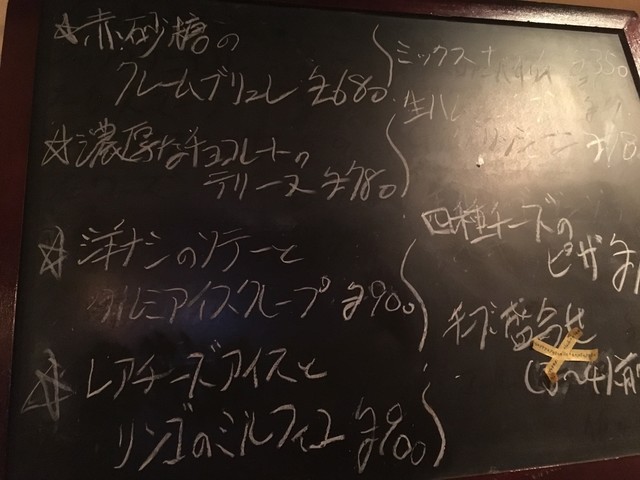 ☆赤砂糖の
クレームブリュレ ¥680
☆濃厚なチョコレートの
テリーヌ ¥780
☆洋ナシのソテーと
アイスクレープ ¥900
☆レアチーズアイスと
リンゴのミルフィユ ¥900
ミックスナ ¥350
生ハ
四種チーズの
ピザ ¥
チーズ盛合せ